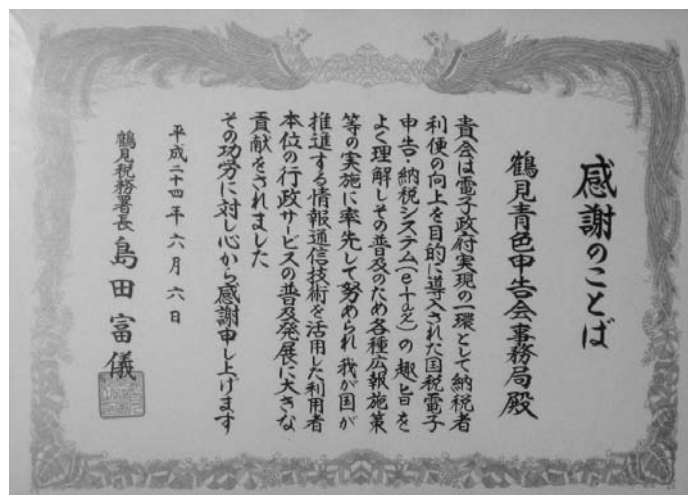 感謝のことば
鶴見青色申告会事務局殿
貴会は電子政府実現の一環として納税者
利便の向上を目的に導入された国税電子
申告・納税システム(e-tax)の趣旨を
よく理解しその普及のため各種広報施策
等の実施に率先して努められ我が国が
推進する情報通信技術を活用した利用者
本位の行政サービスの普及発展に大きな
貢献をされました
その功労に対し心から感謝申し上げます
平成二十四年六月六日
鶴見税務署長 島田富儀